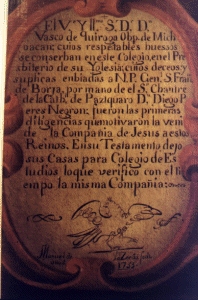 El V. Y Il.º S.D.D.
Vasco de Quiroga Obp. de Mich
oacan; cuios respetables huessos
se conserban en este Colegio, en el Pres
biterio de su Yglesia; cuios deceos y
suplicas enbiadas a N.P. Gen.l S. Fran.co
de Borja, por mano de el S. Chantre
de la Cath.l de Pazquaro D. Diego P
eres Negron; fueron las primeras
diligencias que motivaron la veni
da de la Compañia de Jesus a estos
Reinos. En su Testamento dejo
sus Casas para Colegio de Es
tudios lo que verifico con el Ti
empo la misma Compañia: